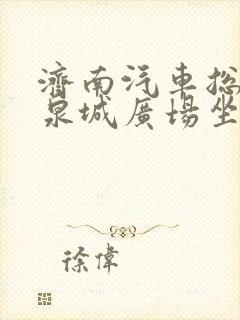 濟南汽車總
泉城廣場坐
徐偉